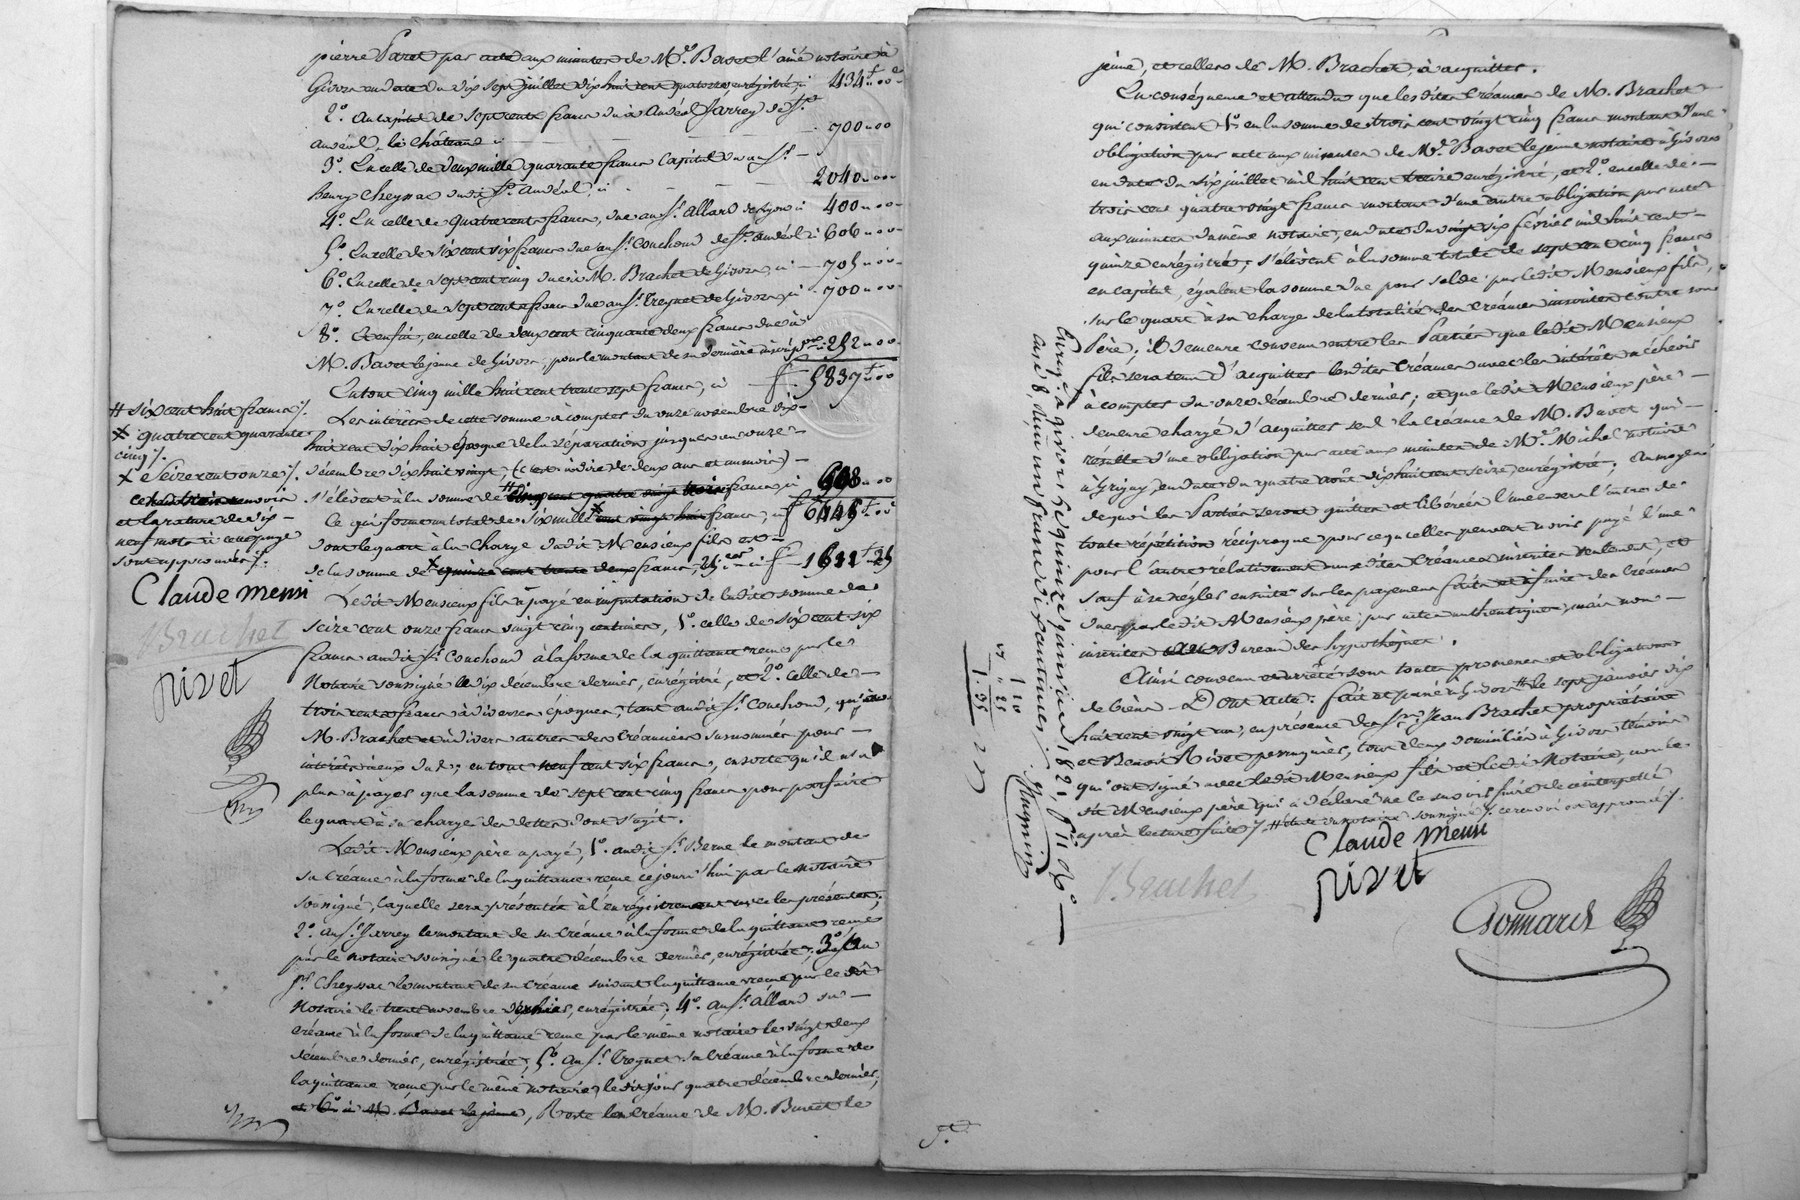 pierre Paret par acte aux minutes de Me. Bavet l'ainé notaire à
Givors en date du dix sept juillet dix huit cent quatorze, enregistré, ci 434f..00c
2°. Au capital de sept cents francs du à Andéol Jarrey de St.
andéol le château ci - - - 700..00
3°. En celle de deux mille quarante francs capital du au Sr.
henry Cheyssac dudit St. andéol, ci - - - 2040..00
4°. En celle de quatre cents francs, due au Sr. Allard de Lyon ci 400..00
5°. En celle de six cent six francs due au Sr. Couchoud de St. andéol ci 606..00
6°. En celle de sept cent cinq due à M. Brachet de Givors, ci 705..00
7°. En celle de sept cents francs due au Sr. Treynet de Givors, ci 700..00
8°. Et enfin, en celle de deux cent cinquante deux francs due à
M. Bavet le jeune de Givors, pour le montant de sa dernière inscripon ci 252..00
En tout cinq mille huit cent trente sept francs, ci f. 5837f..00
Les intérêts de cette somme à compter du onze novembre dix-
huit cent dix huit époque de la séparation jusques au onze
décembre dix huit vingt, (c'est-à-dire de deux ans et un mois)
s'élèvent à la somme de # cinq cent quatre vingt trois francs, ci 608..00
Ce qui forme un total de six mille x cent vingt huit francs, ci f 6445f..00c
dont le quart à la charge dudit Mensieux fils est
de la somme de x quinze cent trente deux francs, 25 cen. ci f 1611f..25
# six cent huit francs /.
x quatre cent quarante
cinq /.
x Seize cent onze /.
ces trois renvois
et la rature de dix-
neuf mots à cette page
sont approuvés /.
Claude mensi
Brachet
rivet
Ledit Mensieux fils a payé en imputation de ladite somme de
seize cent onze francs vingt cinq centimes, 1°. celle de six cent six
francs audit Sr. Couchoud à la forme de la quittance reçue par le
Notaire soussigné le dix décembre dernier, enregistré, et 2°. celle de
trois cents francs à diverses époques, tant audit Sr. Couchoud, qu'à
M. Brachet et à divers autres des créanciers susnommés pour
intérêts à eux dus; en tout neuf cent six francs, en sorte qu'il n'a
plus à payer que la somme de sept cent cinq francs pour parfaire
le quart à sa charge des dettes dont s'agit.
Ledit Mensieux père a payé, 1°. audit Sr. Berne le montant de
sa créance à la forme de la quittance reçue ce jourd'hui par le notaire
soussigné, laquelle sera présentée à l'enregistrement avec les présentes;
2°. au Sr. Jarrey le montant de sa créance à la forme de la quittance reçue
par le notaire soussigné le quatre décembre dernier, enregistrée; 3°. au
Sr. Cheyssac le montant de sa créance suivant la quittance reçue par le dit
Notaire le trente novembre dernier, enregistrée; 4°. au Sr. Allard sa
créance à la forme de la quittance reçue par le même notaire le vingt deux
décembre dernier, enregistrée; 5°. au Sr. Treynet sa créance à la forme de
la quittance reçue par le même notaire, le dit jour quatre décembre dernier;
et 6°. à M. Bavet le jeune, Reste les créances de M. Bavet le
jeune, et celles de M. Brachet, à acquitter.
En conséquence et attendu que les dites créances de M. Brachet
qui consistent 1°. en la somme de trois cent vingt cinq francs montant d'une
obligation par acte aux minutes de Me. Bavet le jeune notaire à Givors
en date du six juillet mil huit cent treize enregistré, et 2°. en celle de
trois cent quatre vingt francs montant d'une autre obligation par acte
aux minutes du même notaire, en date du vingt six février mil huit cent
quinze enregistrée, s'élèvent à la somme totale de sept cent cinq francs
en capital, égalent la somme due pour solde par ledit Mensieux fils,
sur le quart à sa charge de la totalité des créances inscrites contre son
Père; Il demeure convenu entre les Parties que ledit Mensieux
fils sera tenu d'acquitter lesdites créances avec les intérêts à échoir
à compter du onze décembre dernier; et que ledit Mensieux père
demeure chargé d'acquitter seul la créance de M. Bavet qui
résulte d'une obligation par acte aux minutes de Me. Michel notaire
à Grigny, en date du quatre août dix huit cent seize, enregistré; Au moyen
de quoi les Parties seront quittes et libérées l'une envers l'autre de
toute répétition réciproque pour ce qu'elles peuvent avoir payé l'une
pour l'autre relativement aux dites créances inscrites seulement; et
sauf à se régler ensuite sur les payemens faits et à faire des créances
dues par ledit Mensieux père, par actes authentiques, mais non
inscrites au Bureau des hypothèques.
Ainsi convenu et arrêté sous toutes promesses et obligations
de biens. Dont acte: fait et passé à Givors # le sept janvier dix
huit cent vingt un, en présence des Srs. Jean Brachet propriétaire
et Benoit Rivet perruquier, tous deux domiciliés à Givors témoins
qui ont signé avec ledit Mensieux fils et ledit Notaire, non le
dit Mensieux père qui a déclaré ne le savoir faire de ce interpellé
après lecture faite /. # étude du notaire soussigné /. ce renvoi est approuvé /.
Claude mensi
Brachet
rivet
Bonnard
Enregé. à givors le quinze janvier 1821, fo. 11 Vo.
case 8, reçu un franc dix centimes.
1 10
" 25
1. 35